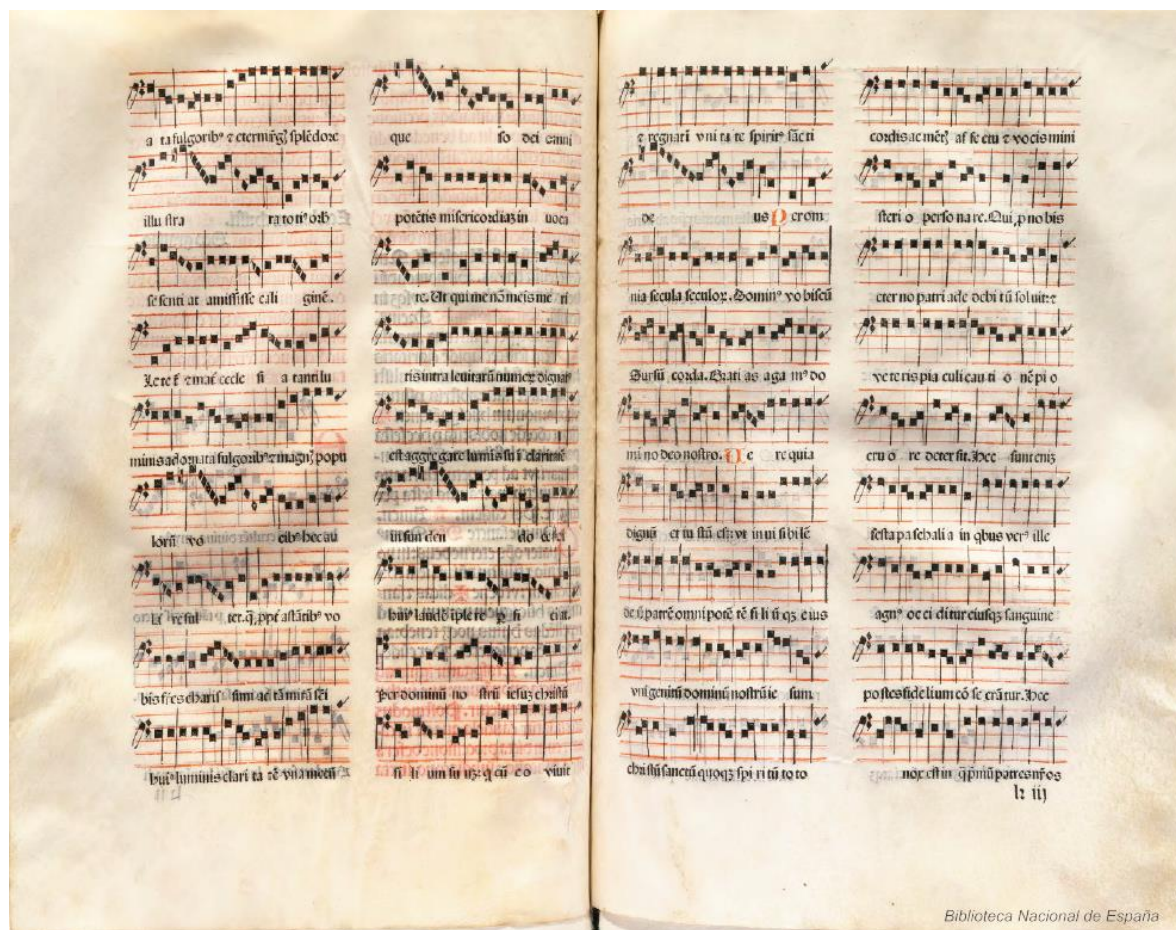 a ta fulgoribꝰ ⁊ eterni rꝫ splēdore
illu stra ra toti ꝰ orb
se senti at amisisse cali ginē.
Le te ť ⁊ mať eccle si a tanti lu
minis adornata fulgoribꝰ ⁊ magnꝫ popu
lorū vo cibꝰ hec au
la resul tet. q̄ ppť astātibꝰ vo
bis fr̄es charis simi ad tā mirā sci
huiꝰ luminis clari ta tē vna mecū
que so dei omni
potētis misericordiaꝫ in uoca
te. Ut qui me nō meis me ri
tis intra leuitarū numeꝝ dignatꝰ
est aggre gare luminis sui claritatē
in fun den do cerei
huiꝰ laudē īple re p fi ciat.
Per dominū no strū iesuꝫ christū
fi li um su uꝫ: q̄ cū e o viuit
⁊ regnat ī vni ta te spiritꝰ sācti
de us Per om
nia secula seculoꝝ. Dominꝰ vo biscū
Sursū corda. Grati as aga mꝰ do
mi no deo nostro. Ue re quia
dignū et iu stū est: vt in ui si bi lē
de ū patrē omni potē tē fi li ū qꝫ eius
vni genitū dominū nostrū ie sum
chri stū sanctū quoqꝫ spi ri tū to to
cordis ac mētꝭ af fe ctu ⁊ vo cis mini
steri o perso na re. Qui ꝓ no bis
eter no patri ade debi tū soluit: ⁊
ve te ris pia culi cau ti o nē pi o
cru o re deter sit. Hec sunt eniꝫ
festa pa schali a in qbus verꝰ ille
agnꝰ oc ci di tur eiusqꝫ sanguine
postes fidelium cō se crā tur. Hec
nox est in q̄ pͥmū patres nr̄os
h iij
Biblioteca Nacional de España